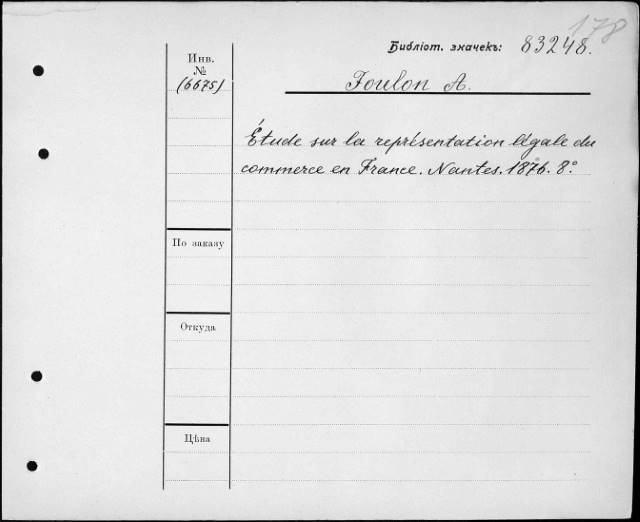 178
Библіот. значекъ: 83248.
Инв.
№
(6675)
Foulon A.
Étude sur la représentation légale du
commerce en France. Nantes. 1876. 8°.
По заказу
Откуда
Цѣна